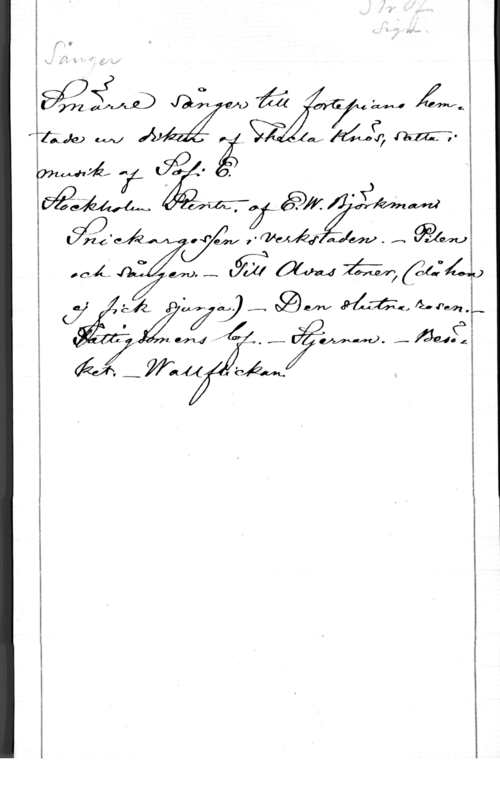 Sånger
Smärre sånger till fortepiano hem-
tade ur dikter af Thecla Knös, satta i
musik af Sofi E.
Stockholm. af E.W. Björkmans
Snickargossen i verkstaden. – Pilen
och sången. – Till Alvas toner, (då hon
ej fick sjunga) – Den slutna rosen. –
Fattigdomens lof. – Stjernan. – Besö-
ket. – Wallflickan.